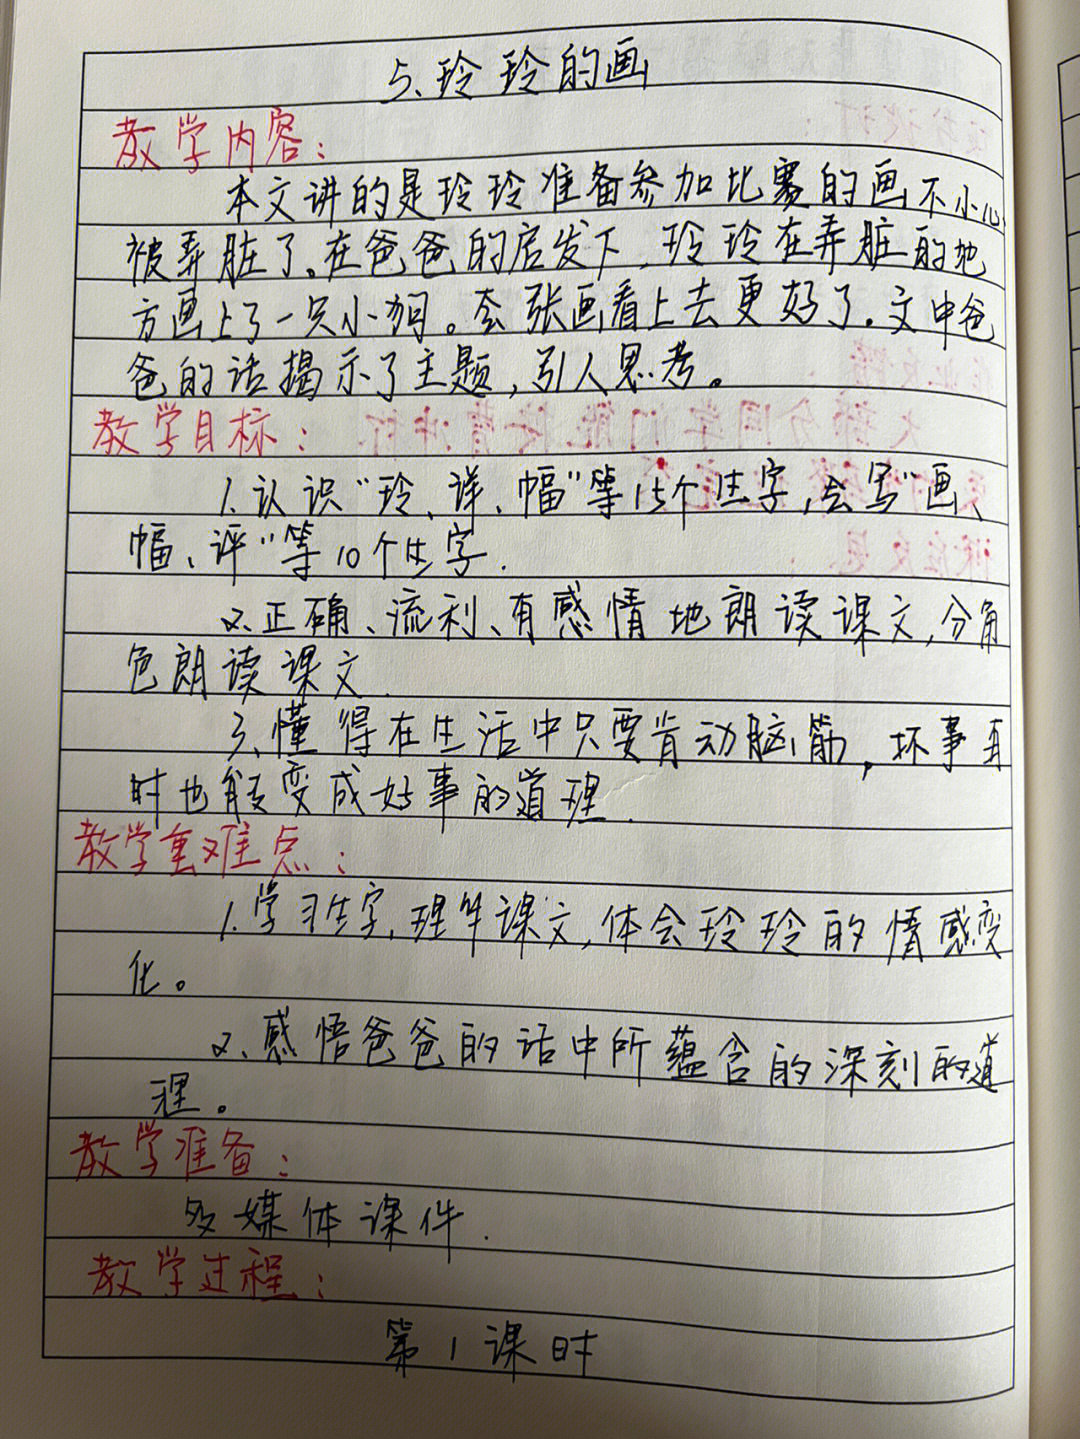 5、玲玲的画
教学内容：
本文讲的是玲玲准备参加比赛的画不小心
被弄脏了。在爸爸的启发下，玲玲在弄脏的地
方画上了一只小狗。整张画看上去更好了。文中爸
爸的话揭示了主题，引人思考。
教学目标：
1.认识“玲、详、幅”等15个生字，会写“画、
幅、评”等10个生字.
2.正确、流利、有感情地朗读课文，分角
色朗读课文.
3、懂得在生活中只要肯动脑筋，坏事有
时也能变成好事的道理.
教学重难点：
1.学习生字，理解课文，体会玲玲的情感变
化。
2、感悟爸爸的话中所蕴含的深刻的道
理。
教学准备：
多媒体课件.
教学过程：
第1课时